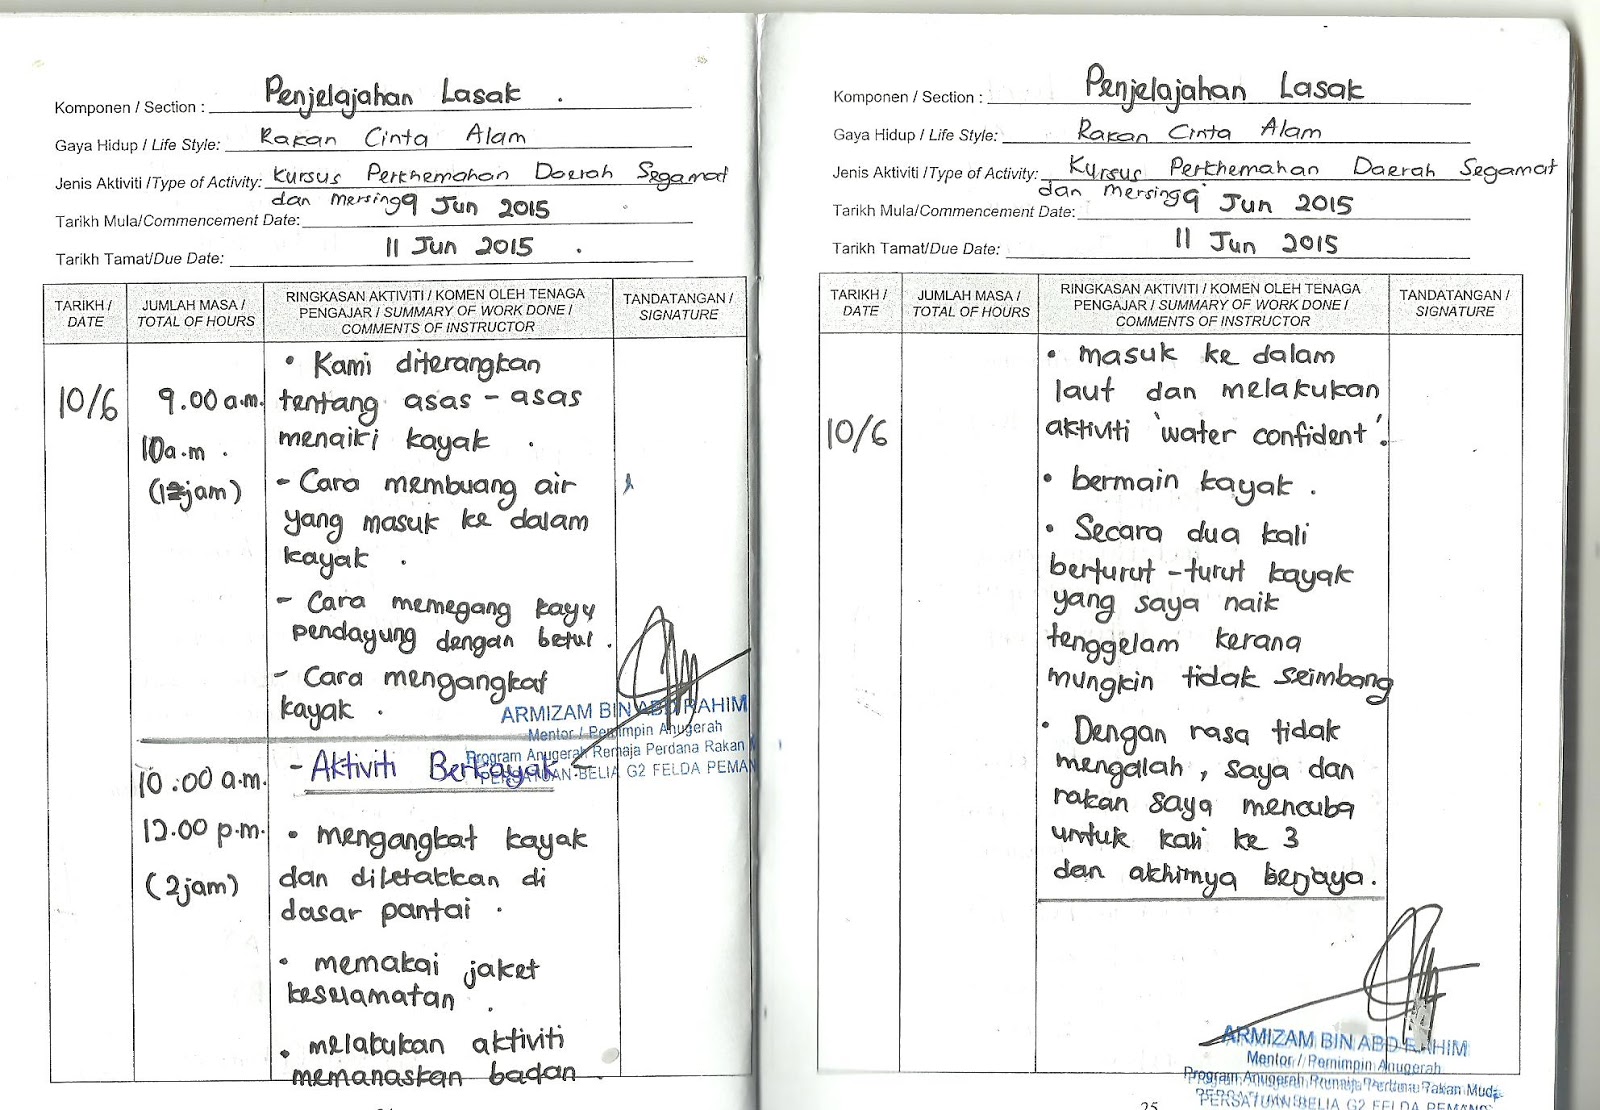 Komponen / Section : Penjelajahan Lasak .
Gaya Hidup / Life Style: Rakan Cinta Alam
Jenis Aktiviti /Type of Activity: Kursus Perkhemahan Daerah Segamat
dan mersing
Tarikh Mula/Commencement Date: 9 Jun 2015
Tarikh Tamat/Due Date: 11 Jun 2015 .
TARIKH / DATE
JUMLAH MASA / TOTAL OF HOURS
RINGKASAN AKTIVITI / KOMEN OLEH TENAGA
PENGAJAR / SUMMARY OF WORK DONE /
COMMENTS OF INSTRUCTOR
TANDATANGAN / SIGNATURE
10/6
9.00 a.m.
10a.m .
jam)
• Kami diterangkan
tentang asas - asas
menaiki kayak .
- Cara membuang air
yang masuk ke dalam
kayak .
- Cara memegang kayu
pendayung dengan betul .
- Cara mengangkat
kayak .
ARMIZAM BIN ABD RAHIM
Mentor / Pemimpin Anugerah
Program Anugerah Remaja Perdana Rakan
PERSATUAN BELIA G2 FELDA PEMAN
10.00 a.m.
12.00 p.m.
(2jam)
- Aktiviti Berkayak
• mengangkat kayak
dan diletakkan di
dasar pantai .
• memakai jaket
keselamatan .
• melakukan aktiviti
memanaskan badan .
Komponen / Section : Penjelajahan Lasak
Gaya Hidup / Life Style: Rakan Cinta Alam
Jenis Aktiviti /Type of Activity: Kursus Perkhemahan Daerah Segamat
dan mersing
Tarikh Mula/Commencement Date: 9 Jun 2015
Tarikh Tamat/Due Date: 11 Jun 2015
TARIKH / DATE
JUMLAH MASA / TOTAL OF HOURS
RINGKASAN AKTIVITI / KOMEN OLEH TENAGA
PENGAJAR / SUMMARY OF WORK DONE /
COMMENTS OF INSTRUCTOR
TANDATANGAN / SIGNATURE
10/6
• masuk ke dalam
laut dan melakukan
aktiviti 'water confident'.
• bermain kayak .
• Secara dua kali
berturut - turut kayak
yang saya naik
tenggelam kerana
mungkin tidak seimbang
• Dengan rasa tidak
mengalah , saya dan
rakan saya mencuba
untuk kali ke 3
dan akhirnya berjaya .
ARMIZAM BIN ABD RAHIM
Mentor / Pemimpin Anugerah
Program Anugerah Remaja Perdana Rakan Muda
PERSATUAN BELIA G2 FELDA PEMAN
25